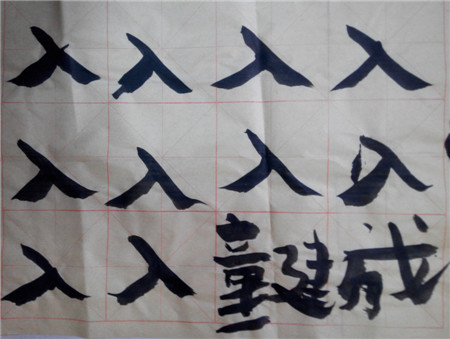 入入入入
入入入入
入入童建